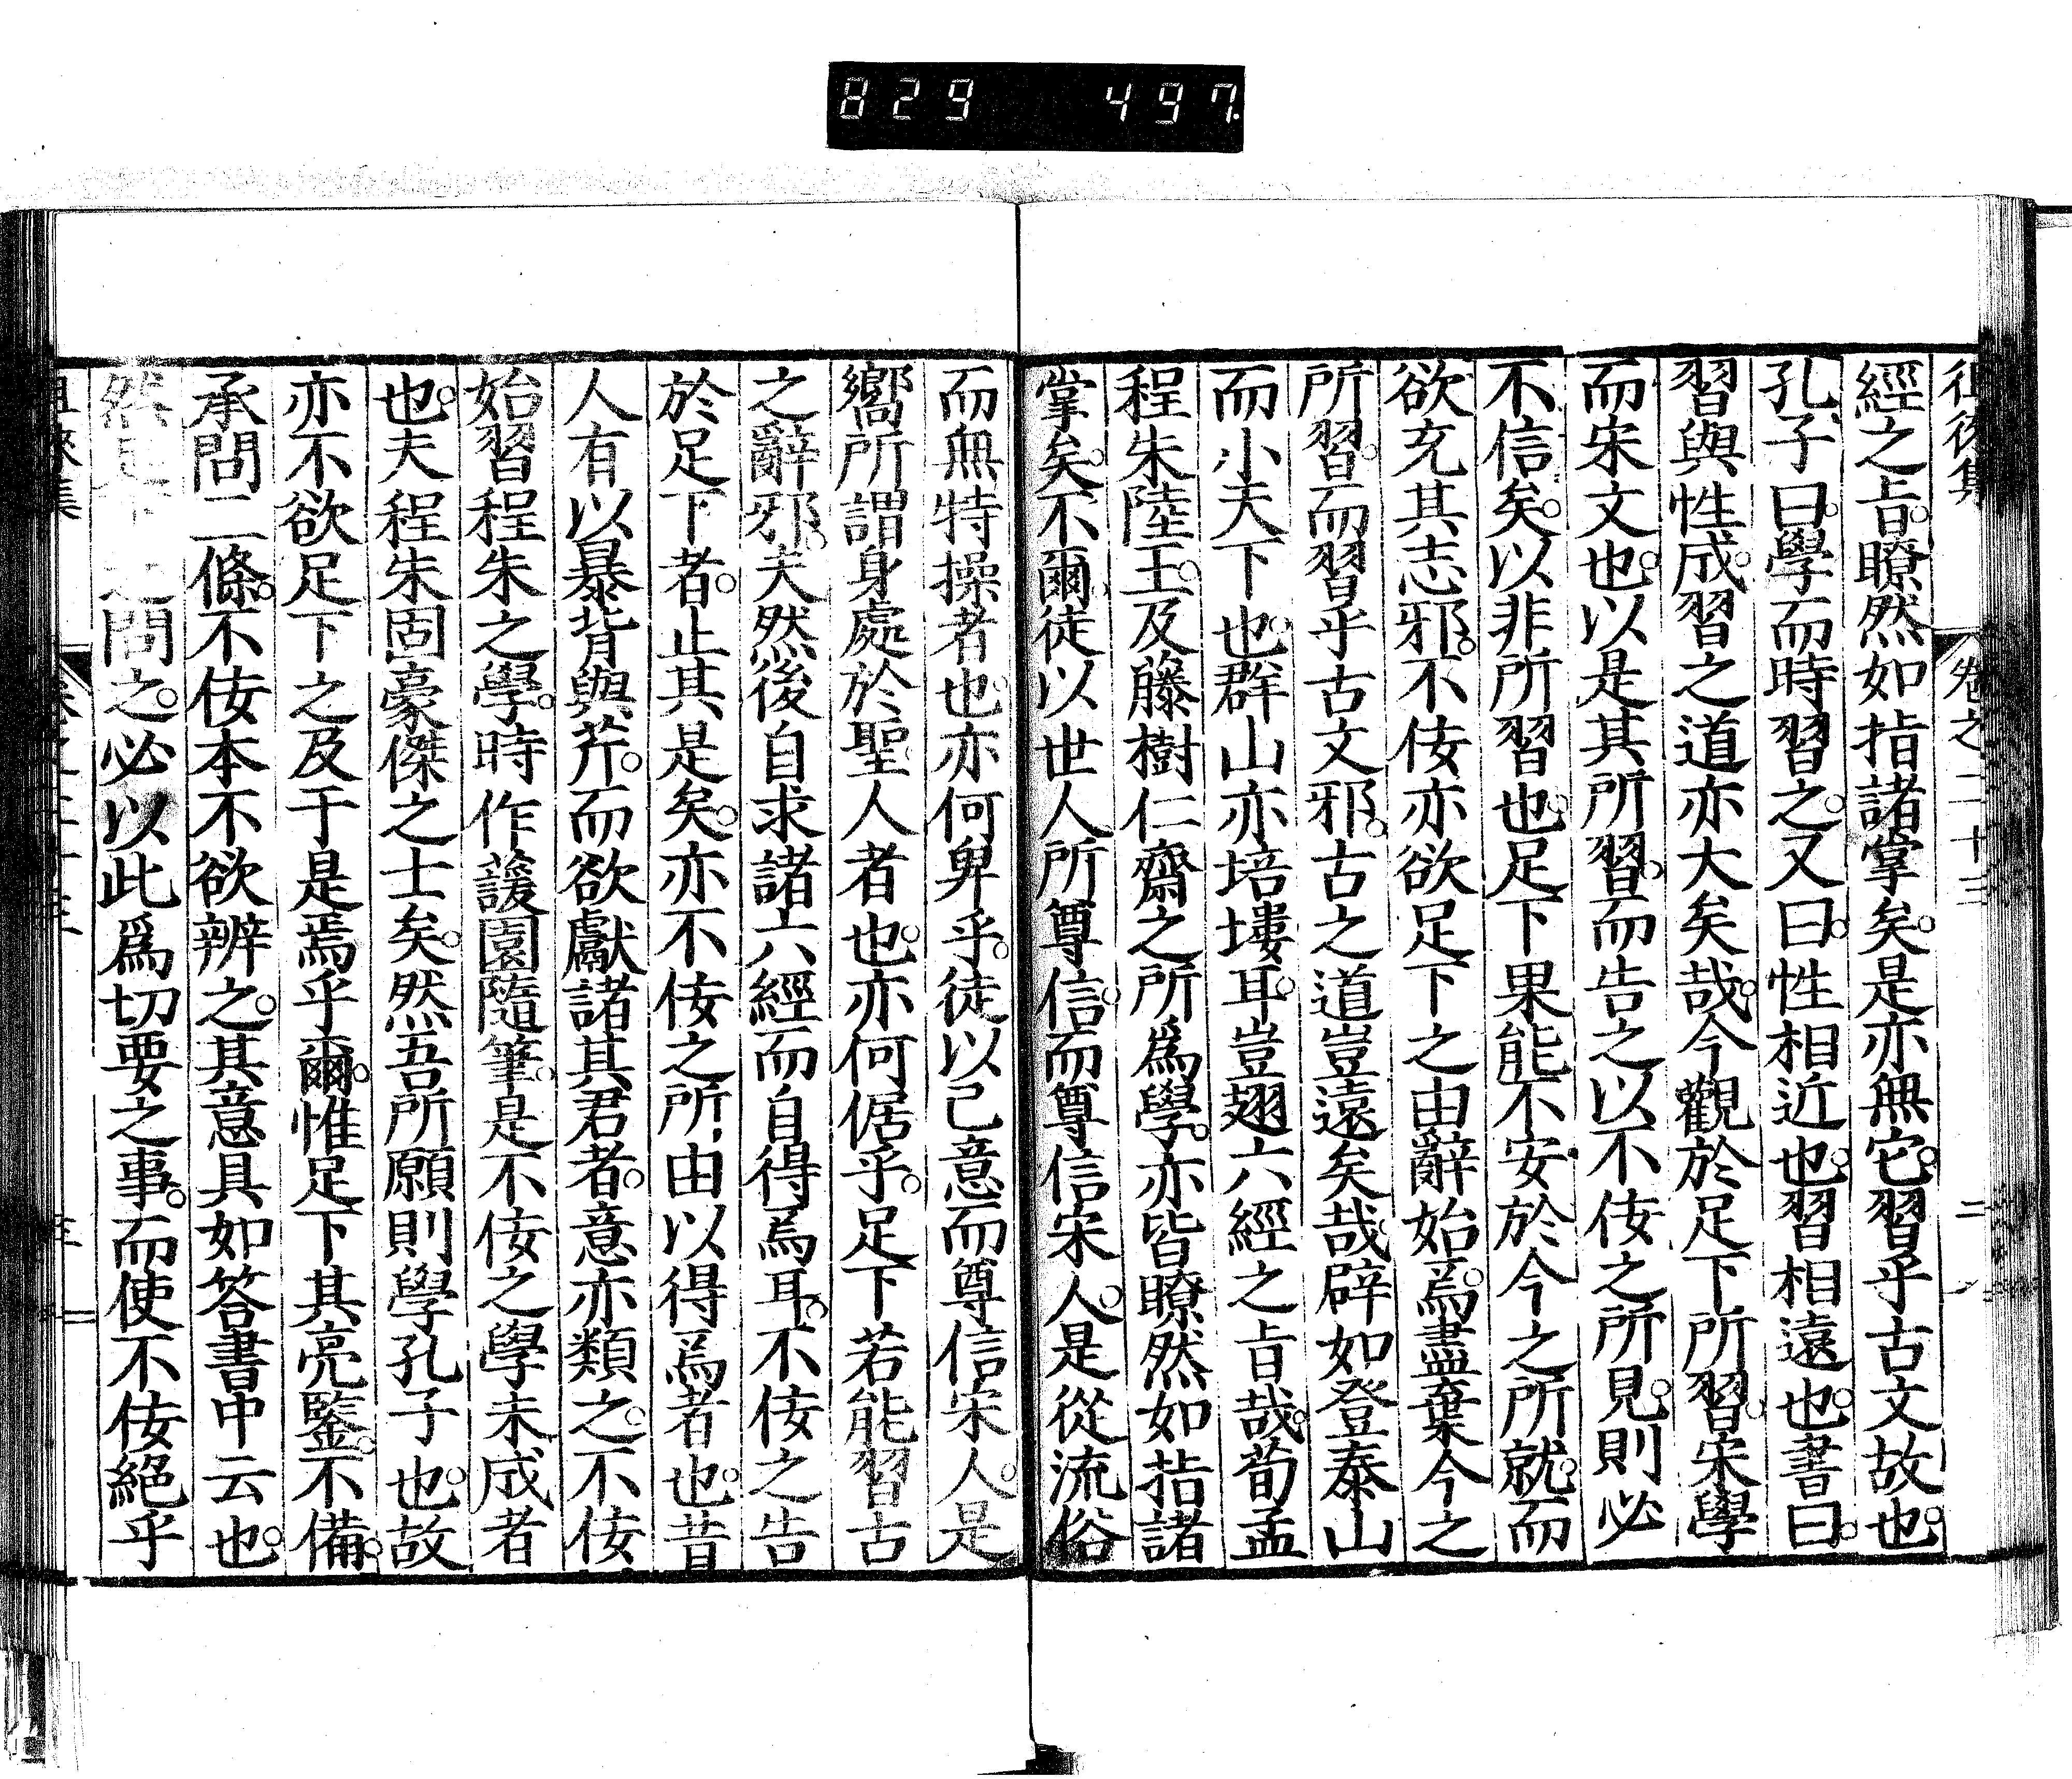 829 497
徂徠集 卷之二十三 二
經之㫖。瞭然如指諸掌矣。是亦無它。習乎古文故也。
孔子曰。學而時習之。又曰。性相近也。習相遠也。書曰。
習與性成。習之道亦大矣哉。今觀於足下所習。宋學
而宋文也。以是其所習。而告之以不佞之所見。則必
不信矣。以非所習也。足下果能不安於今之所就。而
欲充其志邪。不佞亦欲足下之由辭始焉。盡棄今之
所習。而習乎古文邪。古之道豈遠矣哉。辟如登泰山
而小天下也。群山亦培塿耳。豈翅六經之㫖哉。荀孟
程朱陸王。及藤樹仁齋之所爲學。亦皆瞭然如指諸
掌矣。不爾徒以世人所尊信。而尊信宋人。是從流俗
而無特操者也。亦何卑乎。徒以己意而尊信宋人。是
嚮所謂身處於聖人者也。亦何倨乎。足下若能習古
之辭邪。夫然後自求諸六經而自得焉耳。不佞之告
於足下者。止其是矣。亦不佞之所由以得焉者也。昔
人有以暴背與芹。而欲獻諸其君者。意亦類之。不佞
始習程朱之學。時作蘐園隨筆。是不佞之學未成者
也。夫程朱固豪傑之士矣。然吾所願則學孔子也。故
亦不欲足下之及于是焉乎爾。惟足下其亮鑒。不備。
承問二條。不佞本不欲辨之。其意具如答書中云也。
然足下之問之。必以此爲切要之事。而使不佞絕乎
集 二